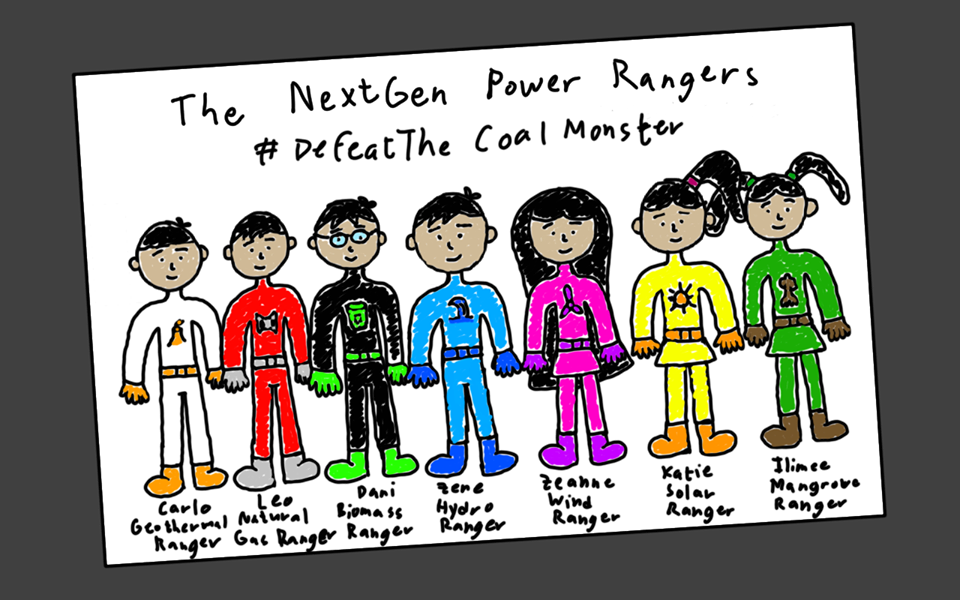 The NextGen Power Rangers
# DefeatThe Coal Monster
Carlo
Geothermal
Ranger
Leo
Natural
Gas Ranger
Dani
Biomass
Ranger
Zene
Hydro
Ranger
Zeanne
Wind
Ranger
Katie
Solar
Ranger
Ilimee
Mangrove
Ranger